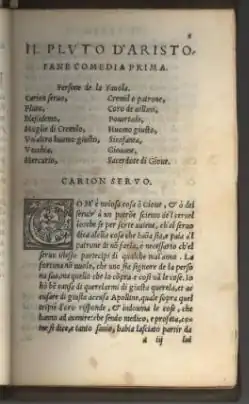 IL PLVTO D'ARISTO-
FANE COMEDIA PRIMA.
Persone de la Fauola.
Carion seruo,
Cremil e patrone,
Pluto,
Coro de uillani,
Blepsidemo,
Pouertade,
Mogier di Cremilo,
Huomo giusto,
Vn'altro huomo giusto,
Sicofanta,
Vecchia,
Giouane,
Mercurio,
Sacerdote di Gioue.
CARION SERVO.
COM'è noiosa cosa ô Gioue, & ô dei
seruir' à un patrõe scemo del ceruel
lo: che se per sorte auiene, ch'el seruo
dica alcũa cosa che buõa sia, e paia a'l
patrone di nõ farla, è necessario ch'el
seruo istesso partecipi di qualche mal'anno. La
fortuna nõ uuole, che uno sia signore de la perso
na sua, ma quello che lo cõpra e cosi uã le cose. Io
hò bẽ causa di querelarmi di giusta querela, et ac
cusare di giusta accusa Apolline, quale sopra quel
tripiè d'oro risponde, & indouina le cose, che
hanno ad uenire: che sendo medico, e profeta, co-
me si dice, e tanto sauio, habbia lasciato partir da
a iij
lui